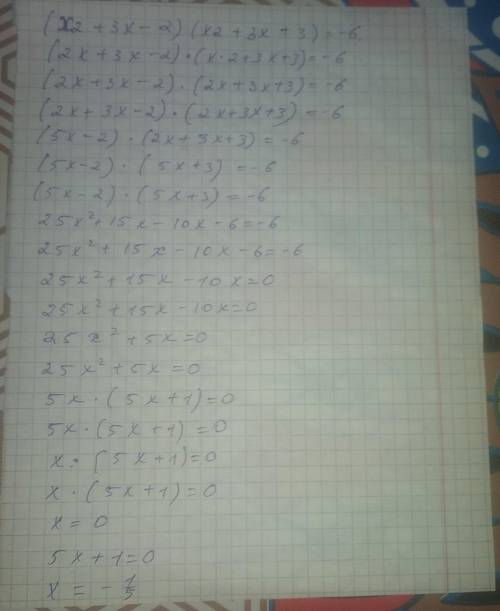 (x2 + 3x - 2) (x2 + 3x + 3) = -6.
(2x + 3x - 2) · (x·2 + 3x + 3) = -6
(2x + 3x - 2) · (2x + 3x + 3) = -6
(2x + 3x - 2) · (2x + 3x + 3) = -6
(5x - 2) · (2x + 3x + 3) = -6
(5x - 2) · (5x + 3) = -6
(5x - 2) · (5x + 3) = -6
25x² + 15x - 10x - 6 = -6
25x² + 15x - 10x - 6 = -6
25x² + 15x - 10x = 0
25x² + 15x - 10x = 0
25x² + 5x = 0
25x² + 5x = 0
5x · (5x + 1) = 0
5x · (5x + 1) = 0
x · (5x + 1) = 0
x · (5x + 1) = 0
x = 0
5x + 1 = 0
x = - 1/5